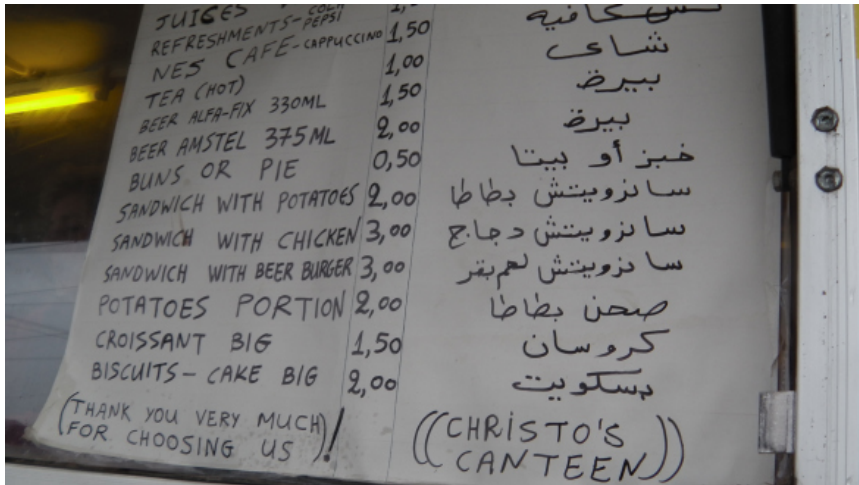 JUICES
REFRESHMENTS- COLA PEPSI 1,50 نسكافيه
NES CAFE-CAPPUCCINO 1,50 شاي
TEA (HOT) 1,00 بيرة
BEER ALFA-FIX 330ML 1,50 بيرة
BEER AMSTEL 375ML 2,00
BUNS OR PIE 0,50 خبز أو بيتا
SANDWICH WITH POTATOES 2,00 ساندويتش بطاطا
SANDWICH WITH CHICKEN 3,00 ساندويتش دجاج
SANDWICH WITH BEER BURGER 3,00 ساندويتش لحم بقر
POTATOES PORTION 2,00 صحن بطاطا
CROISSANT BIG 1,50 كروسان
BISCUITS- CAKE BIG 2,00 بسكويت
(THANK YOU VERY MUCH
FOR CHOOSING US)!
((CHRISTO'S
CANTEEN))